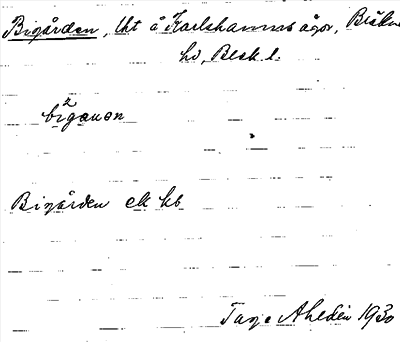 Bigården, lht å Karlshamns ägor, Bräkne
hd, Blek. l.
bigauon
Bigården ek kb
Tage Ahldén 1930